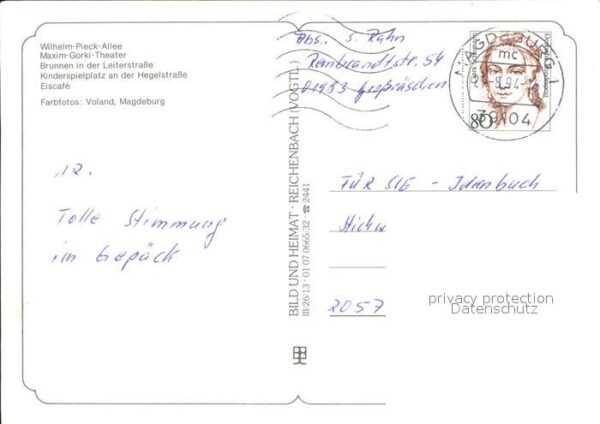 Wilhelm-Pieck-Allee
Maxim-Gorki-Theater
Brunnen in der Leiterstraße
Kinderspielplatz an der Hegelstraße
Eiscafé
Farbfotos: Voland, Magdeburg
12.
Tolle Stimmung
im Gepäck
BILD UND HEIMAT · REICHENBACH (VOGTL)
III/26/13 · 01 07 0665/32 · ☎ 2441
Abs. S. Rahn
Rembrandtstr. 54
01983 Großräschen
MAGDEBURG 1
mc
39104
80
FÜR SIE - Ideenbuch
2057
privacy protection
Datenschutz